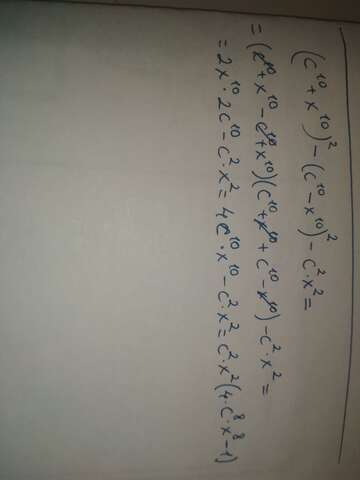 (c¹⁰+x¹⁰)²-(c¹⁰-x¹⁰)²-c²·x²=
=(c¹⁰+x¹⁰-c¹⁰+x¹⁰)(c¹⁰+x¹⁰+c¹⁰-x¹⁰)-c²·x²=
=2x¹⁰·2c¹⁰-c²·x²=4c¹⁰·x¹⁰-c²·x²=c²·x²(4·c⁸·x⁸-1)